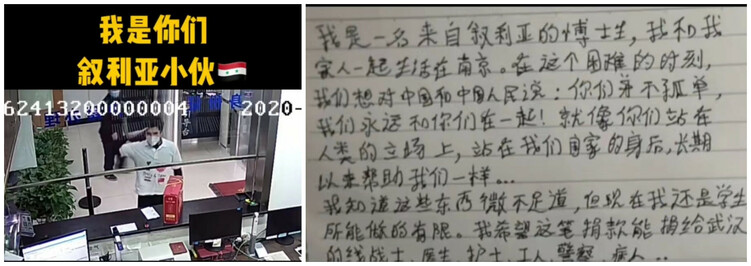 我是你们
叙利亚小伙
62413200000004 2020-
我是一名来自叙利亚的博士生，我和我
家人一起生活在南京。在这个困难的时刻，
我们想对中国和中国人民说：你们并不孤单，
我们永远和你们在一起！就像你们站在
人类的立场上，站在我们国家的身后，长期
以来帮助我们一样...
我知道这些东西微不足道，但现在我还是学生
所能做的有限。我希望这笔捐款能捐给武汉
的线战士、医生、护士、工人、警察、病人...